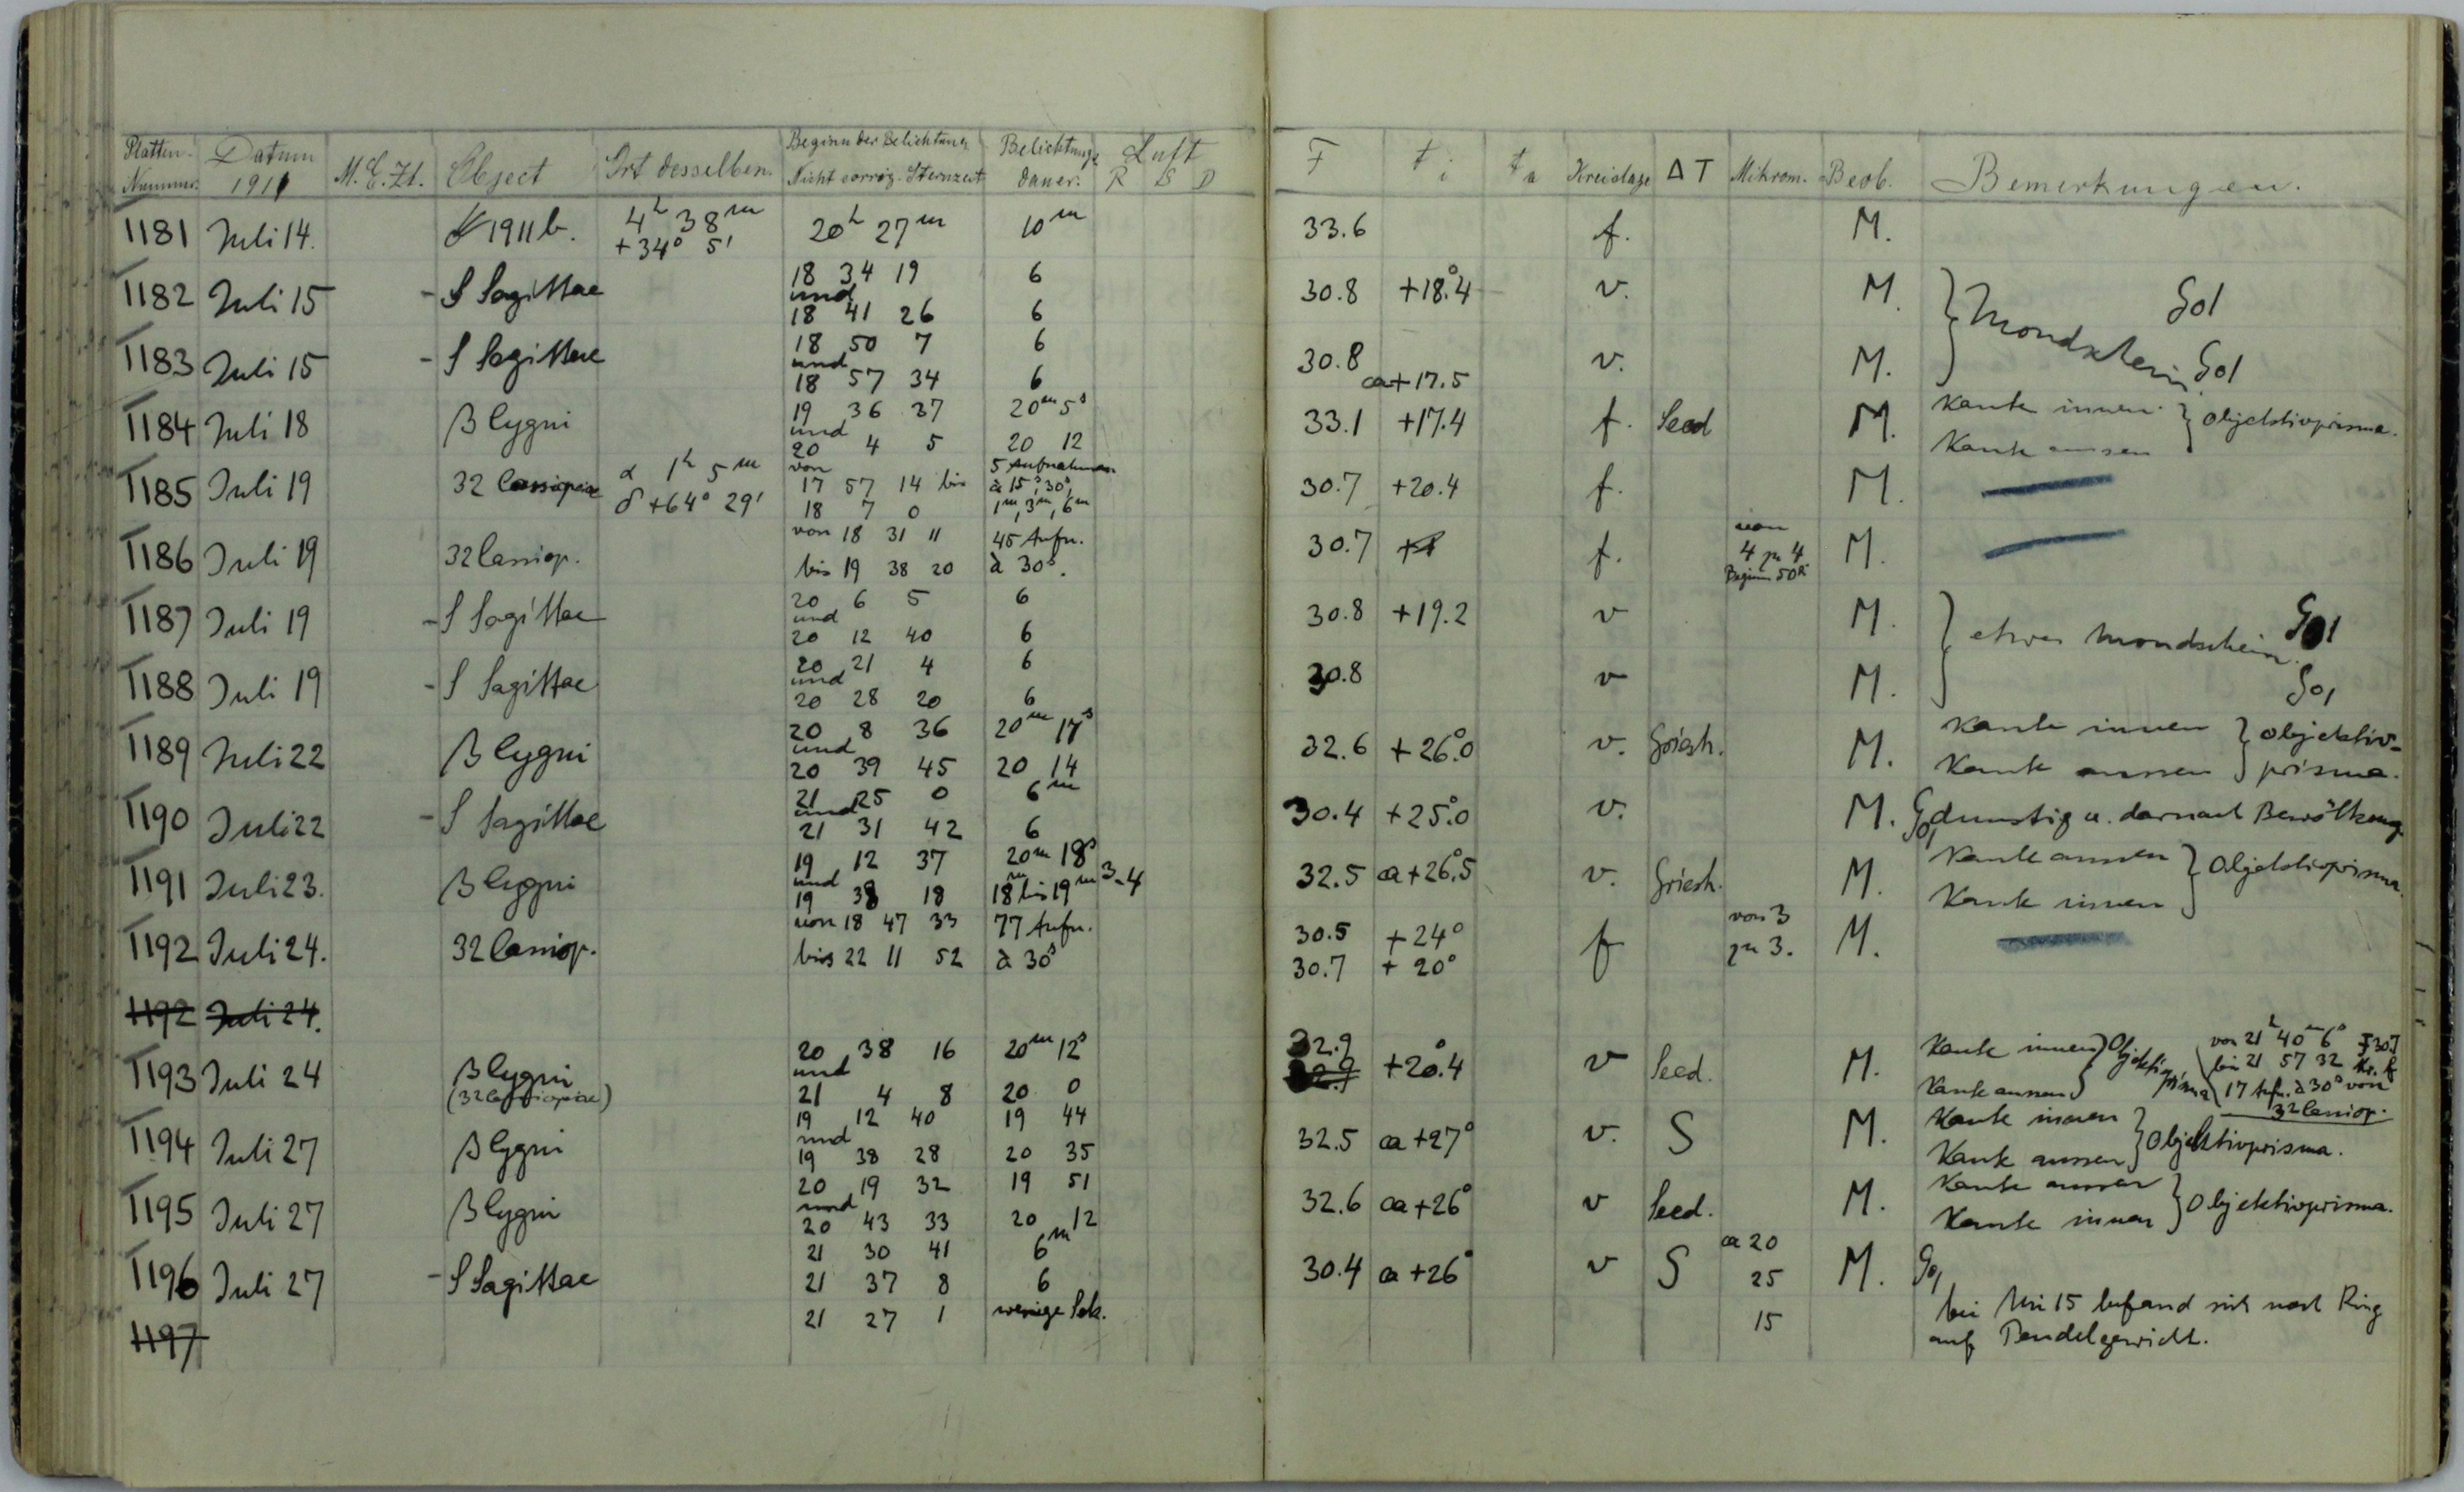 Platten- Nummer. Datum 1911 M.E.Zt. Object Ort desselben. Beginn der Belichtung Nicht corrig. Sternzeit Belichtungs dauer. Luft R S D F t i t a Kreislage Δ T Mikrom. Beob. Bemerkungen.
1181 Juli 14. 1911 b. 4h 38m +34° 5' 20h 27m 10m 33.6 f. M.
1182 Juli 15 - S Sagittae 18 34 19 6 30.8 +18°.4 v. M. } Mondschein
und
18 41 26 6
1183 Juli 15 - S Sagittae 18 50 7 6 30.8 ca +17.5 v. M.
und
18 57 34 6
1184 Juli 18 β Cygni 19 36 37 20m 5s 33.1 +17.4 f. Seed M. Kante innen } Objektivprisma.
und
20 4 5 20 12 Kante aussen
1185 Juli 19 32 Cassiopeiae α 1h 5m von 5 Aufnahmen 30.7 +20.4 f. M.
δ +64° 29' 17 57 14 bis à 15s, 30s,
18 7 0 1m, 3m, 6m
1186 Juli 19 32 Cassiop. von 18 31 11 45 Aufn. 30.7 f. von 4 zu 4 M.
bis 19 38 20 à 30s. Beginn 50R
1187 Juli 19 - S Sagittae 20 6 5 6 30.8 +19.2 v M. } etwas Mondschein.
und
20 12 40 6
1188 Juli 19 - S Sagittae 20 21 4 6 30.8 v M.
und
20 28 20 6
1189 Juli 22 β Cygni 20 8 36 20m 17s 32.6 +26°.0 v. Griesh. M. Kante innen } Objektiv-
und
20 39 45 20 14 Kante aussen } prisma.
1190 Juli 22 - S Sagittae 21 25 0 6m 30.4 +25°.0 v. M. dunstig u. darnach Bewölkung
und
21 31 42 6
1191 Juli 23. β Cygni 19 12 37 20m 18s 3-4 32.5 ca +26°.5 v. Griesh. M. Kante aussen } Objektivprisma
und
19 38 18 18m bis 19m Kante innen
1192 Juli 24. 32 Cassiop. von 18 47 33 77 Aufn. 30.5 +24° f von 3 zu 3. M.
bis 22 11 52 à 30s 30.7 +20°
1192 Juli 24.
1193 Juli 24 β Cygni 20 38 16 20m 12s 32.9 +20°.4 v Seed. M. Kante innen } Objektivprisma von 21h 40m 6s F 30.7
und bis 21 57 32 Kr. f
(32 Cassiopeiae) 21 4 8 20 0 Kante aussen 17 Aufn. à 30s von
32 Cassiop.
1194 Juli 27 β Cygni 19 12 40 19 44 32.5 ca +27° v. S M. Kante innen } Objektivprisma.
und
19 38 28 20 35 Kante aussen
1195 Juli 27 β Cygni 20 19 32 19 51 32.6 ca +26° v Seed. M. Kante aussen } Objektivprisma.
und
20 43 33 20 12 Kante innen
1196 Juli 27 - S Sagittae 21 30 41 6m 30.4 ca +26° v S ca 20 M.
21 37 8 6 25
21 27 1 wenige Sek. 15 bei Mi 15 befand sich noch Ring
1197 auf Pendelgewicht.